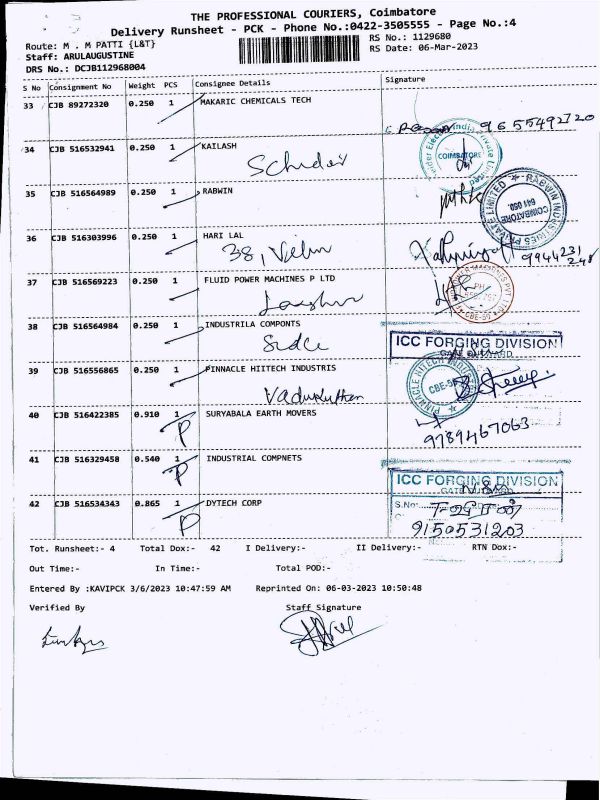 THE PROFESSIONAL COURIERS, Coimbatore
Delivery Runsheet - PCK - Phone No.:0422-3505555 - Page No.:4
Route: M . M PATTI {L&T}
RS No.: 1129680
Staff: ARULAUGUSTINE
RS Date: 06-Mar-2023
DRS No.: DCJB112968004
S No Consignment No Weight PCS Consignee Details Signature
33 CJB 89272320 0.250 1 MAKARIC CHEMICALS TECH
9655492720
34 CJB 516532941 0.250 1 KAILASH
COIMBATORE
35 CJB 516564989 0.250 1 RABWIN
RABWIN INDUSTRIES PRIVATE LIMITED
COIMBATORE
641 050.
36 CJB 516303996 0.250 1 HARI LAL
38,
9944231
248
37 CJB 516569223 0.250 1 FLUID POWER MACHINES P LTD
38 CJB 516564984 0.250 1 INDUSTRILA COMPONTS
ICC FORGING DIVISION
39 CJB 516556865 0.250 1 PINNACLE HIITECH INDUSTRIS
PINNACLE HITECH
40 CJB 516422385 0.910 1 SURYABALA EARTH MOVERS
P
9789467063
41 CJB 516329458 0.540 1 INDUSTRIAL COMPNETS
P
ICC FORGING DIVISION
S.No:
42 CJB 516534343 0.865 1 DYTECH CORP
P
9150531203
Tot. Runsheet:- 4 Total Dox:- 42 I Delivery:- II Delivery:- RTN Dox:-
Out Time:- In Time:- Total POD:-
Entered By :KAVIPCK 3/6/2023 10:47:59 AM Reprinted On: 06-03-2023 10:50:48
Verified By Staff Signature